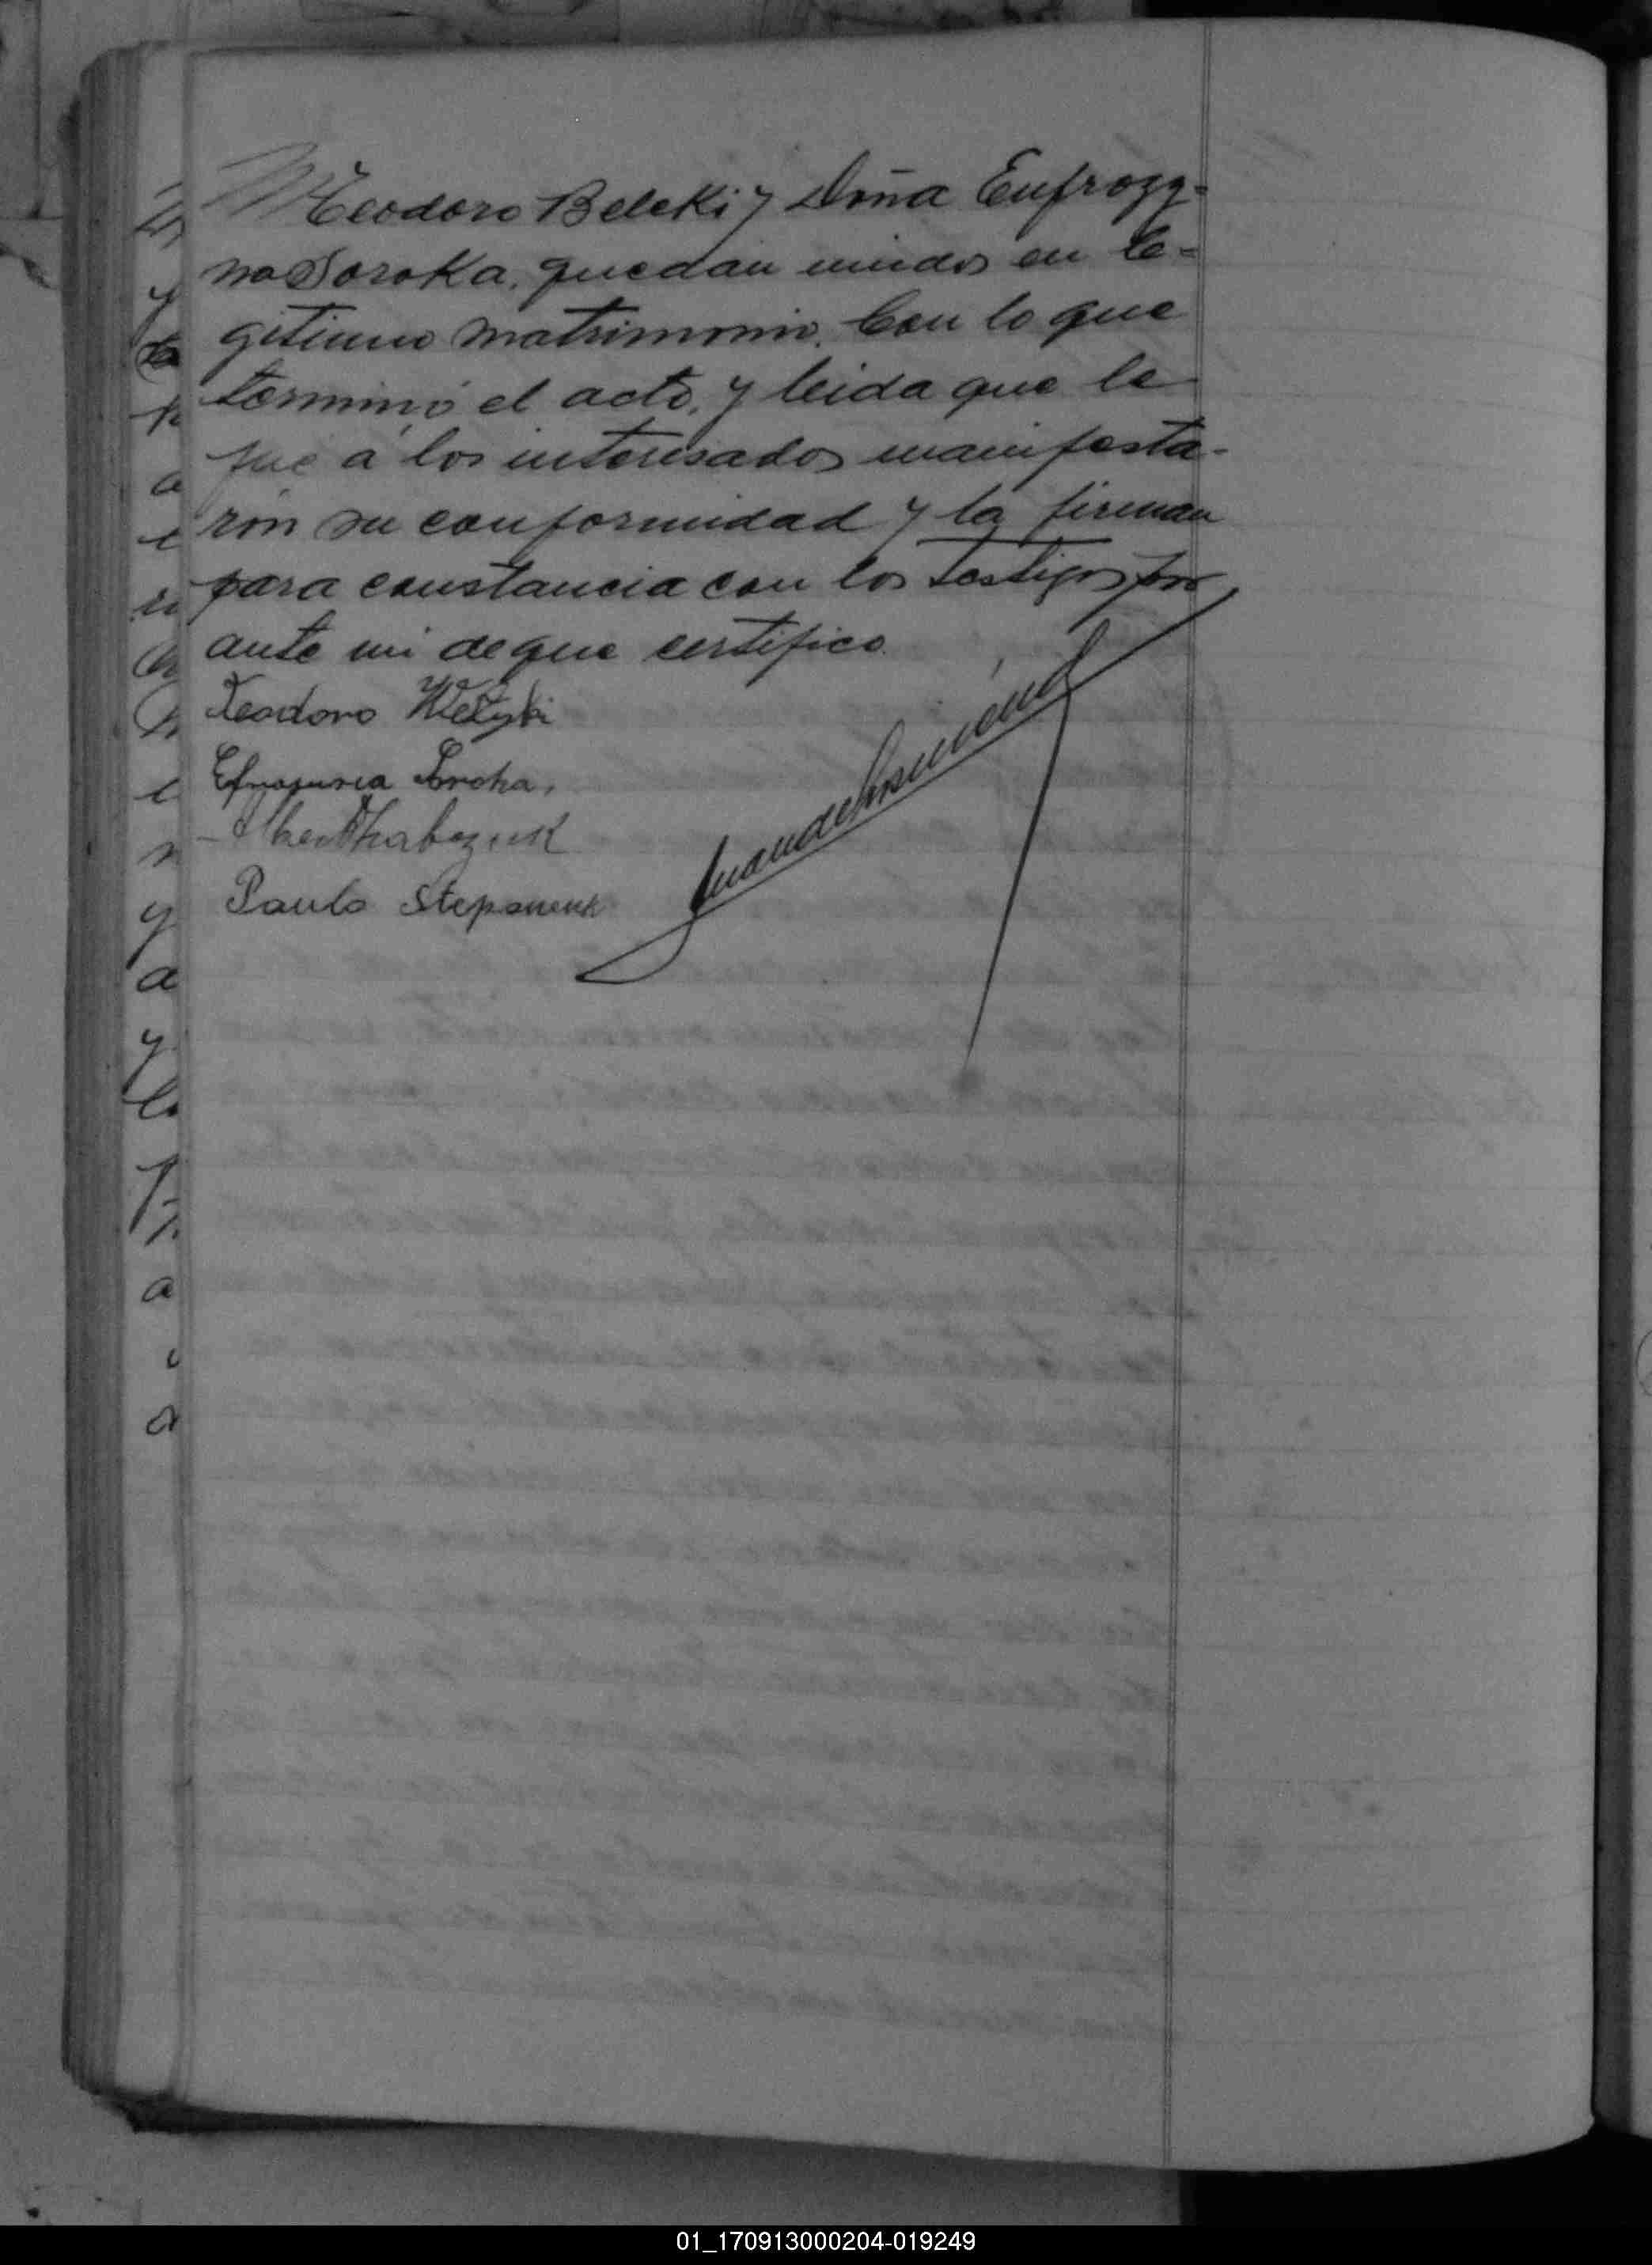 Teodoro Beleki y Doña Eufrozy-
na Soroka, quedan unidos en le-
gitimo matrimonio. Con lo que
terminó el acto, y leida que le
fué á los interesados manifesta-
ron su conformidad y la firman
para constancia con los testigos por
ante mi de que certifico.
Teodoro
Soroka,
Paulo Stepaniuk
01_170913000204-019249